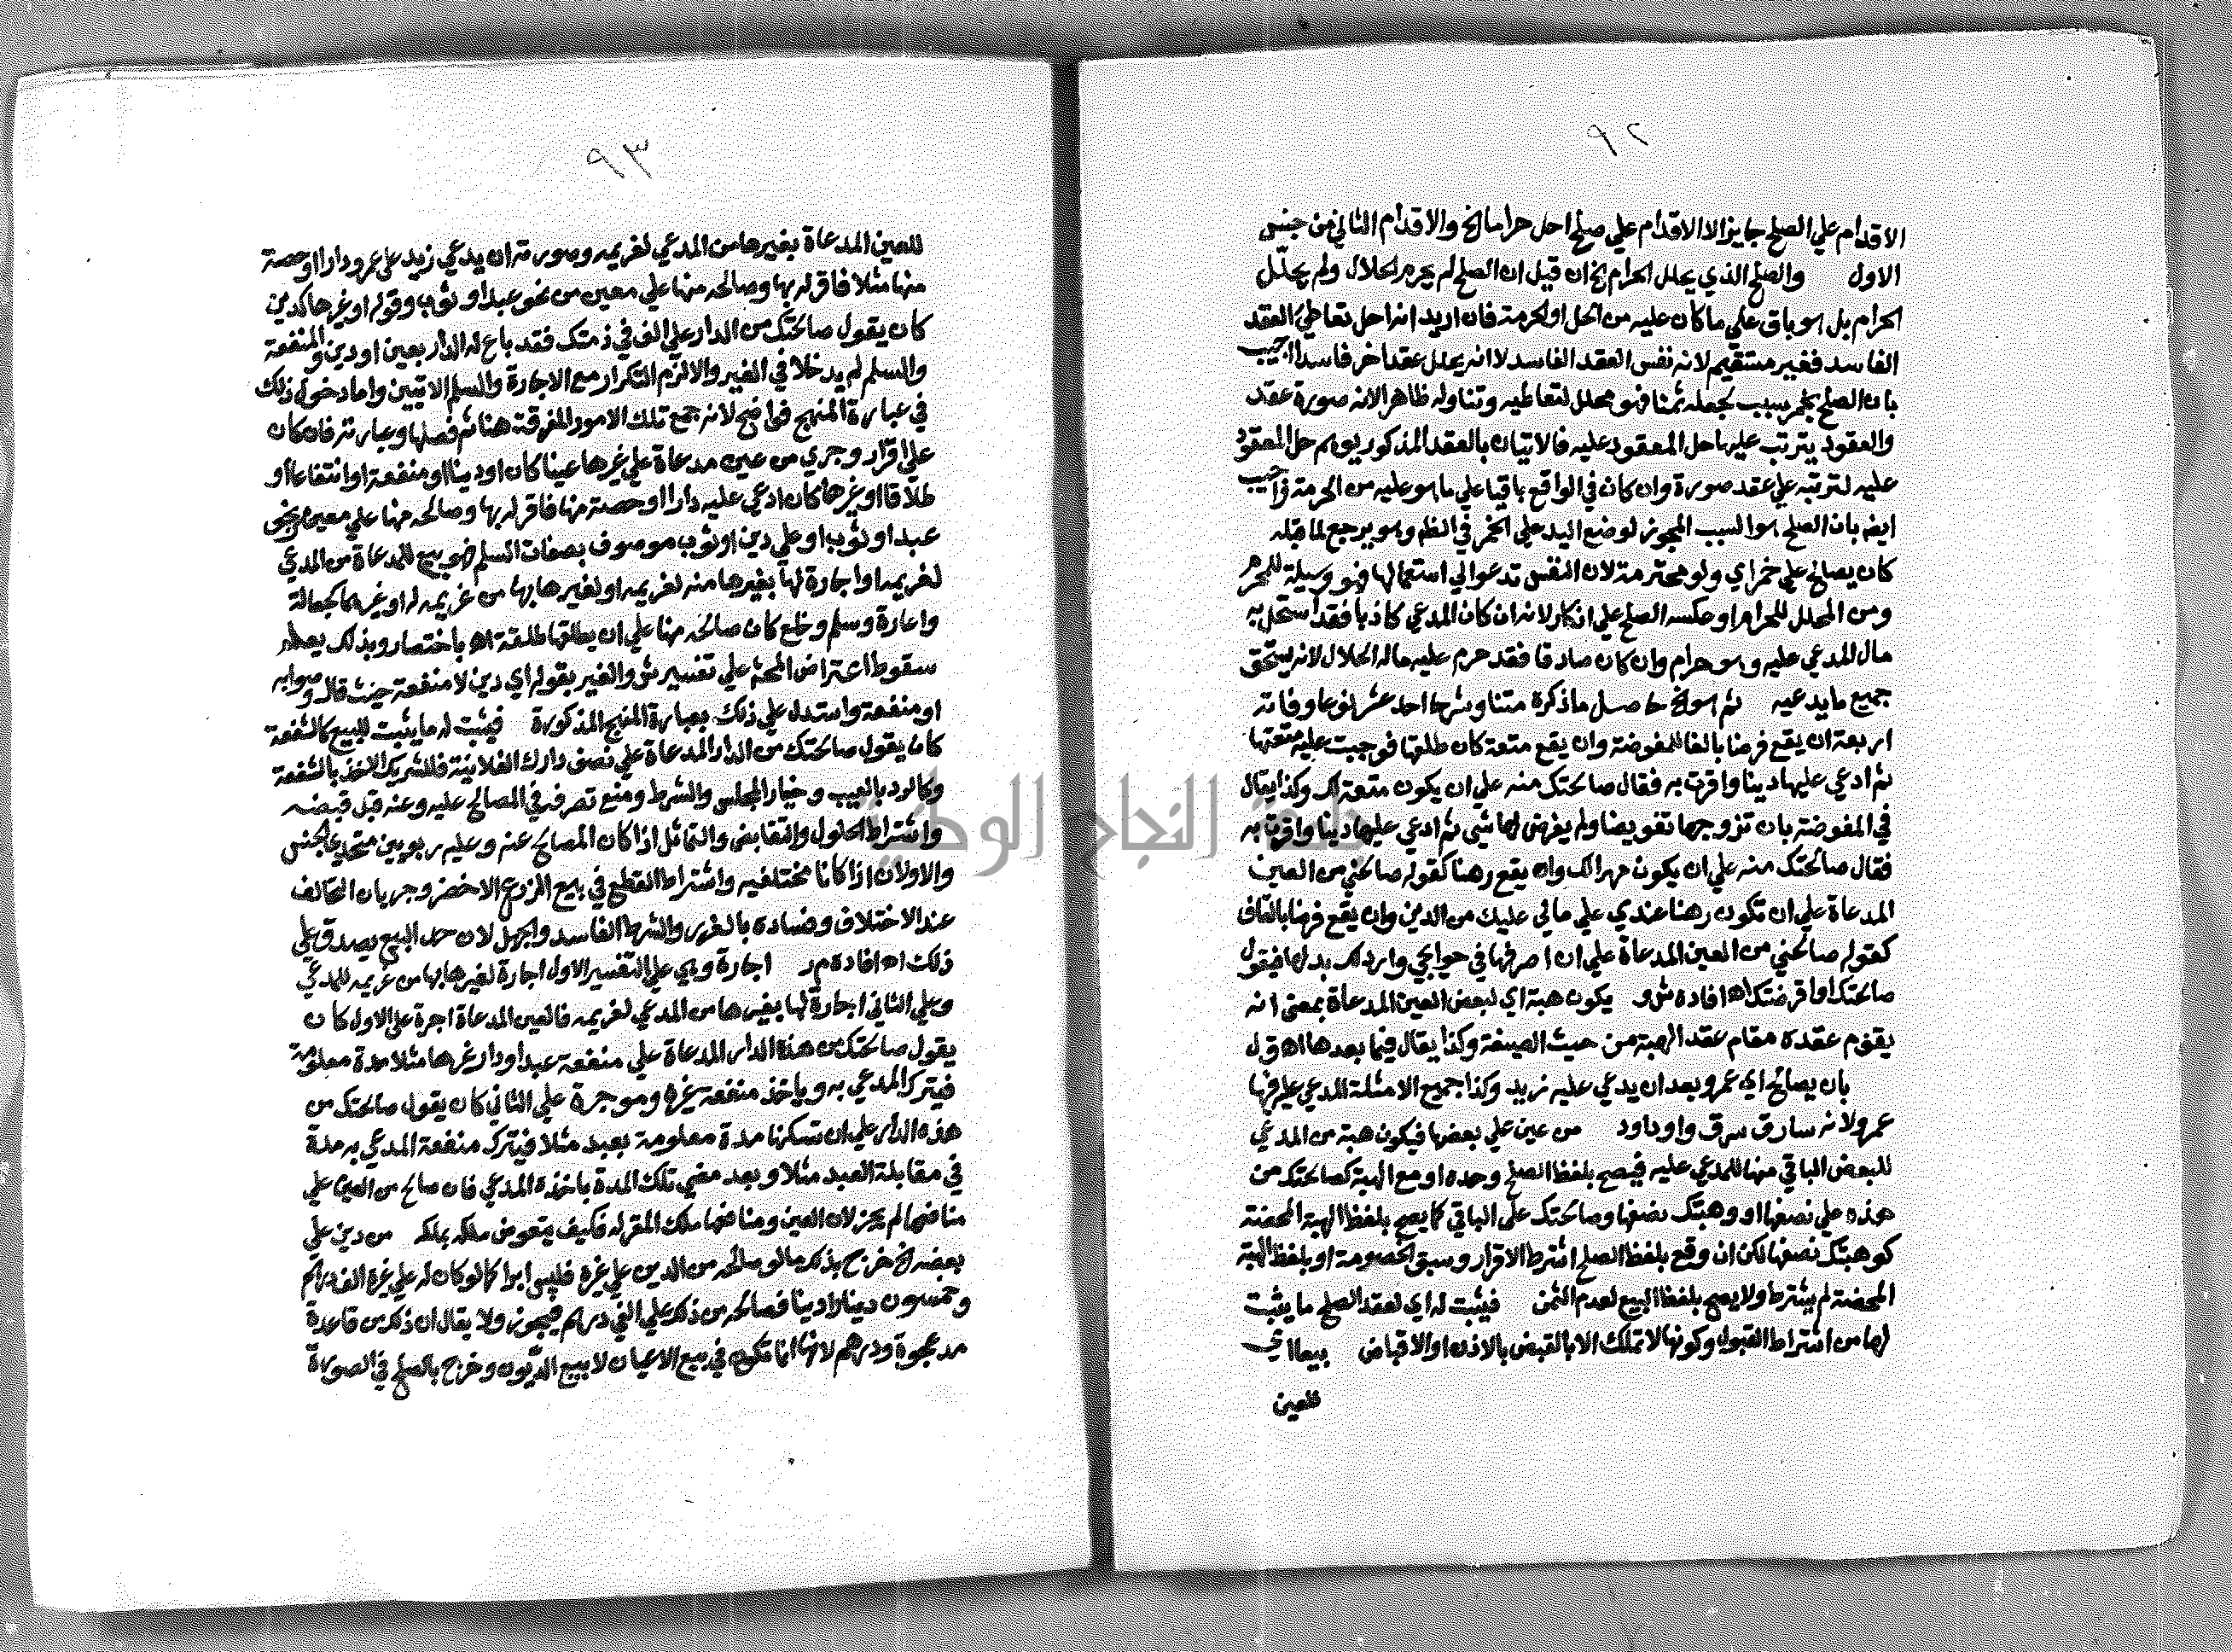 ٩٢
الاقدام علي الصلح جايز الا الاقدام علي صلح احل حراما الخ والاقدام الثاني من جنس
الاول والصلح الذي يحلل الحرام الخ ان قيل ان الصلح لم يحرم الحلال ولم يحلل
الحرام بل هو باق علي ما كان عليه من الحل او الحرمة فان اريد انه احل تعاطي العقد
الفاسد فغير مستقيم لانه نفس العقد الفاسد لا انه يحلل عقدا اخر فاسدا اجيب
بان الصلح بخمر بسبب لجعله ثمنا فهو محلل لتعاطيه وتناوله ظاهرا لانه صورة عقد
والعقود يترتب عليها حل المعقود عليه فالاتيان بالعقد المذكور يوهم حل المعقود
عليه لترتبه علي عقد صورة وان كان في الواقع باقيا علي ما هو عليه من الحرمة واجيب
ايضا بان الصلح هو السبب المجوز لوضع اليد علي الخمر في الظم وهو يرجع لما قبله
كان يصالح علي خمر اي ولو محترمة لان النفس تدعو الي استعمالها فهو وسيلة للمحرم
ومن المحلل للحرام او عكسه الصلح علي انكار لانه ان كان المدعي كاذبا فقد استحل به
مال المدعي عليه وهو حرام وان كان صادقا فقد حرم عليه ماله الحلال لانه يستحق
جميع ما يدعيه ثم هو الخ حاصل ما ذكره متنا وشرحا احد عشر نوعا وفاته
اربعة ان يقع فرضا بالفا للمفوضة وان يقع متعة كان طلقها فوجبت عليه متعتها
ثم ادعي عليها دينا واقرت به فقال صالحتك منه علي ان يكون متعة لك وكذا يقال
في المفوضة بان تزوجها تفويضا ولم يفرض لها شي ثم ادعي عليها دينا واقرت به
فقال صالحتك منه علي ان يكون مهرا لك وان يقع رهنا كقوله صالحني من العين
المدعاة علي ان تكون رهنا عندي علي مالي عليك من الدين وان يقع قرضا بالقاف
كقوله صالحني من العين المدعاة علي ان اصرفها في حوايجي وارد لك بدلها فيقول
صالحتك او اقرضتك اه افاده ش و يكون هبة اي لبعض العين المدعاة بمعني انه
يقوم عقده مقام عقد الهبة من حيث الصيغة وكذا يقال فيما بعدها اه ق ل
بان يصالح اي عمرو بعد ان يدعي عليه زيد وكذا جميع الامثلة المدعي عليه فيها
عمرو لانه سارق سرق واو داود من عين علي بعضها فيكون هبة من المدعي
للبعض الباقي منها للمدعي عليه فيصح بلفظ الصلح وحده او مع الهبة كصالحتك من
هذه علي نصفها او وهبتك نصفها وصالحتك علي الباقي كما يصح بلفظ الهبة المحضة
كوهبتك نصفها لكن ان وقع بلفظ الصلح اشترط الاقرار وسبق الخصومة او بلفظ الهبة
المحضة لم يشترط ولا يصح بلفظ البيع لعدم الثمن فيثبت له اي لعقد الصلح ما يثبت
لها من اشتراط القبول وكونها لا تملك الا بالقبض بالاذن او الاقباض بيعا اي
للعين
٩٣
للعين المدعاة بغيرها من المدعي لغريمه وصورته ان يدعي زيد علي عمرو دارا او حصة
منها مثلا فاقر له بها وصالحه منها علي معين من نحو عبد او ثوب وقوله او غيرها كدين
كان يقول صالحتك من الدار علي الف في ذمتك فقد باع له الدار بعين او دين والمنفعة
والسلم لم يدخلا في الغير والا لزم التكرار مع الاجارة والسلم الاتيين واما دخول ذلك
في عبارة المنهج فواضح لانه جمع تلك الامور المفرقة هنا ثم فصلها وعبارته فان كان
علي اقرار وجري من عين مدعاة علي غيرها عينا كان او دينا او منفعة او انتفاعا او
طلاقا او غيرها كان ادعي عليه دارا او حصة منها فاقر له بها وصالحه منها علي معين من نحو
عبد او ثوب او علي دين او ثوب موصوف بصفات السلم فهو بيع للمدعاة من المدعي
لغريمه او اجارة لها بغيرها منه لغريمه او لغيرها بها من غريمه له او غيرهما كجعالة
واعارة وسلم وخلع كان صالحه منها علي ان يطلقها طلقة اه باختصار وبذلك يعلم
سقوط اعتراض المحش علي تفسير ش و الغير بقوله اي دين لا منفعة حيث قال وصوابه
او منفعة واستدل علي ذلك بعبارة المنهج المذكورة فيثبت له ما يثبت للبيع كالشفعة
كان يقول صالحتك من الدار المدعاة علي نصف دارك الفلانية فللشريك الاخذ بالشفعة
وكالرد بالعيب وخيار المجلس والشرط ومنع تصرفه في المصالح عليه وعنه قبل قبضه
واشتراط الحلول والتقابض والتماثل اذا كان المصالح عنه وعليه ربويين متحدي الجنس
والاولان اذا كانا مختلفيه واشتراط القطع في بيع الزرع الاخضر وجريان التحالف
عند الاختلاف وفساده بالغرر والشرط الفاسد والجهل لان حد البيع يصدق علي
ذلك اه افاده م ر اجارة وهي علي التفسير الاول اجارة لغيرها بها من غريمه للمدعي
وعلي الثاني اجارة لها بغيرها من المدعي لغريمه فالعين المدعاة اجرة علي الاول كان
يقول صالحتك من هذه الدار المدعاة علي منفعة عبد او دار غيرها مثلا مدة معلومة
فيترك المدعي به وياخذ منفعة غيره وموجرة علي الثاني كان يقول صالحتك من
هذه الدار علي ان تسكنها مدة معلومة بعبد مثلا فيترك منفعة المدعي به مدة
في مقابلة العبد مثلا وبعد مضي تلك المدة ياخذه المدعي فان صالح من العين علي
منافعها لم يجز لان العين ومنافعها ملك المقر له فكيف يتعوض ملكه بملكه من دين علي
بعضه الخ خرج بذلك ما لو صالحه من الدين علي غيره فليس ابرا كما لو كان له علي غيره الف درهم
وخمسون دينارا دينا فصالحه من ذلك علي الفي درهم فيجوز ولا يقال ان ذلك من قاعدة
مد عجوة ودرهم لانها انما تكون في بيع الاعيان لا بيع الديون وخرج بالصلح في الصورة